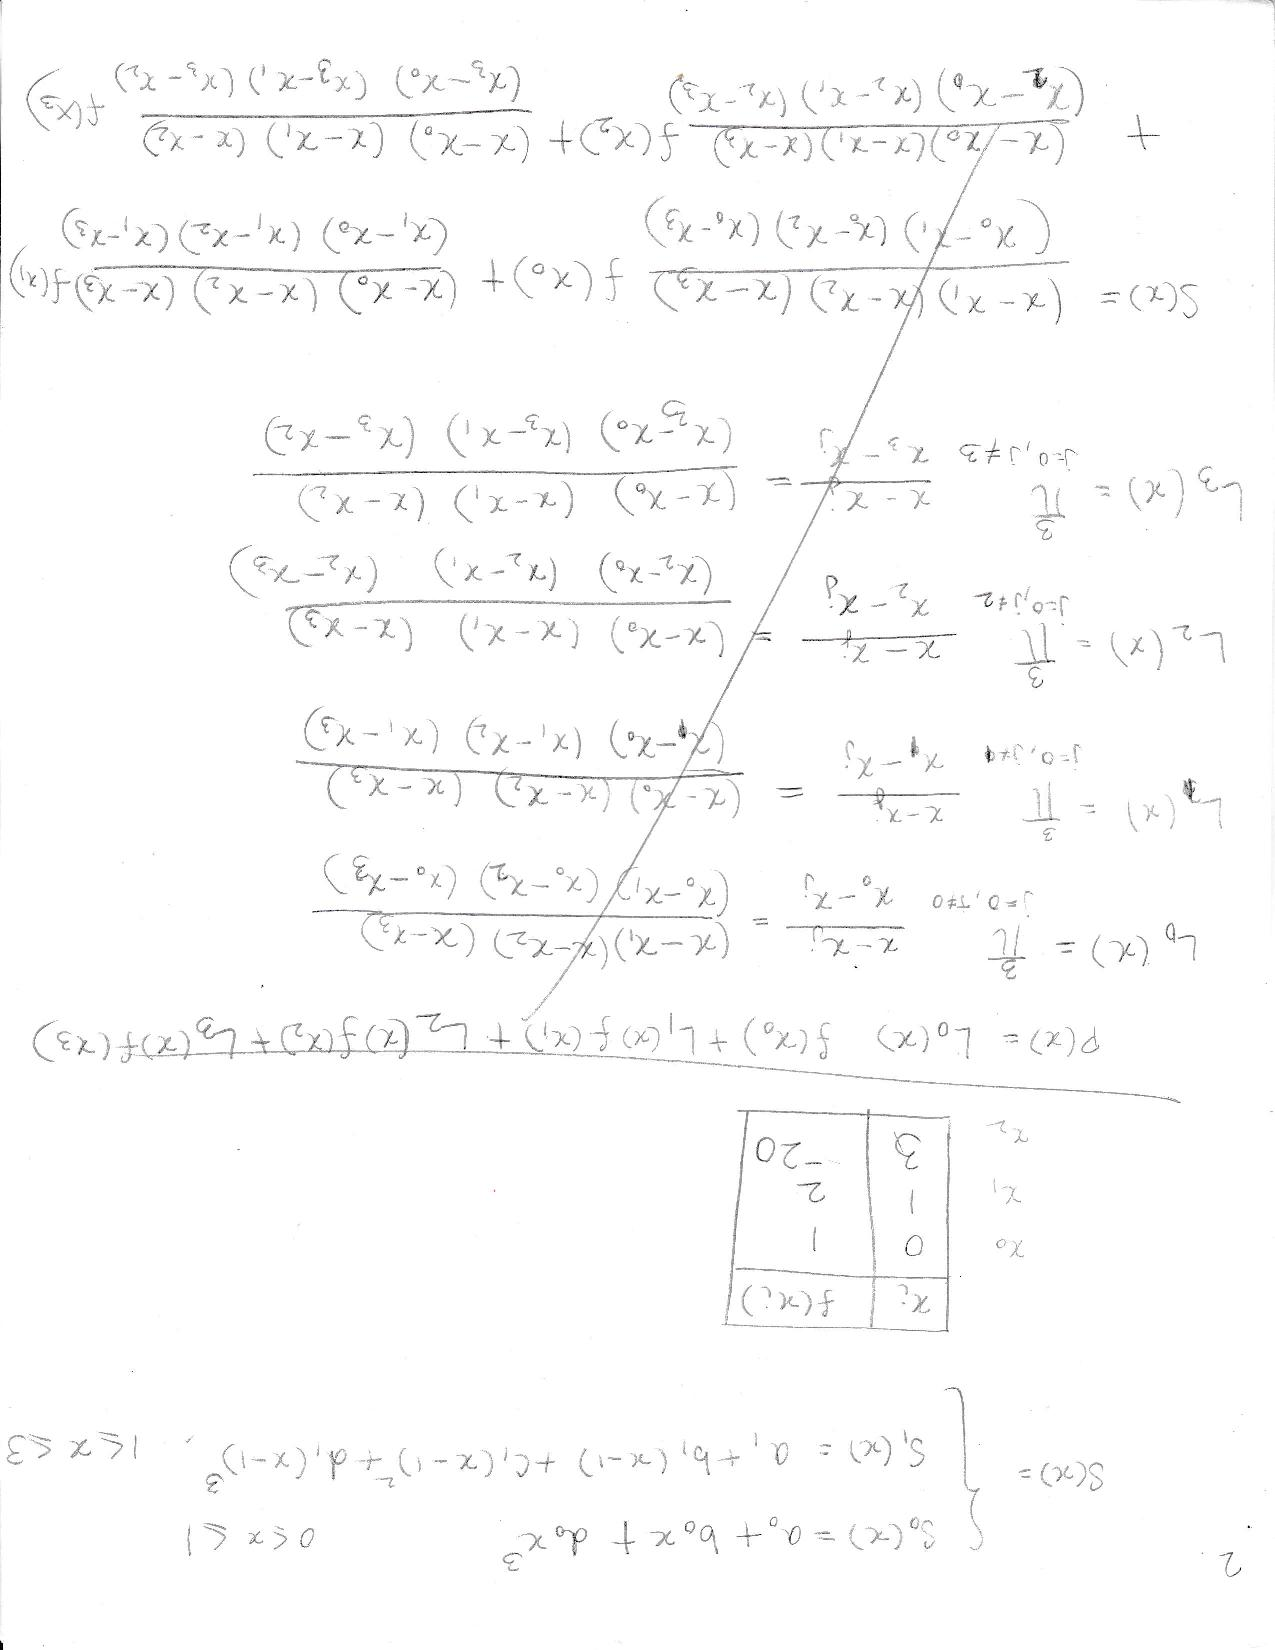 2
S(x) = { S₀(x) = a₀ + b₀x + d₀x³ 0 ≤ x ≤ 1
S₁(x) = a₁ + b₁(x-1) + c₁(x-1)² + d₁(x-1)³, 1 ≤ x ≤ 3
xᵢ f(xᵢ)
x₀ 0 1
x₁ 1 2
x₂ 3 -20
P(x) = L₀(x) f(x₀) + L₁(x) f(x₁) + L₂(x) f(x₂) + L₃(x) f(x₃)
L₀(x) = 3 π j=0, j≠0 (x-xⱼ)/(x₀-xⱼ) = (x-x₁)(x-x₂)(x-x₃) / (x₀-x₁)(x₀-x₂)(x₀-x₃)
L₁(x) = 3 π j=0, j≠1 (x-xⱼ)/(x₁-xⱼ) = (x-x₀)(x-x₂)(x-x₃) / (x₁-x₀)(x₁-x₂)(x₁-x₃)
L₂(x) = 3 π j=0, j≠2 (x-xⱼ)/(x₂-xⱼ) = (x-x₀)(x-x₁)(x-x₃) / (x₂-x₀)(x₂-x₁)(x₂-x₃)
L₃(x) = 3 π j=0, j≠3 (x-xⱼ)/(x₃-xⱼ) = (x-x₀)(x-x₁)(x-x₂) / (x₃-x₀)(x₃-x₁)(x₃-x₂)
S(x) = (x-x₁)(x-x₂)(x-x₃) / (x₀-x₁)(x₀-x₂)(x₀-x₃) f(x₀) + (x-x₀)(x-x₂)(x-x₃) / (x₁-x₀)(x₁-x₂)(x₁-x₃) f(x₁)
+ (x-x₀)(x-x₁)(x-x₃) / (x₂-x₀)(x₂-x₁)(x₂-x₃) f(x₂) + (x-x₀)(x-x₁)(x-x₂) / (x₃-x₀)(x₃-x₁)(x₃-x₂) f(x₃)